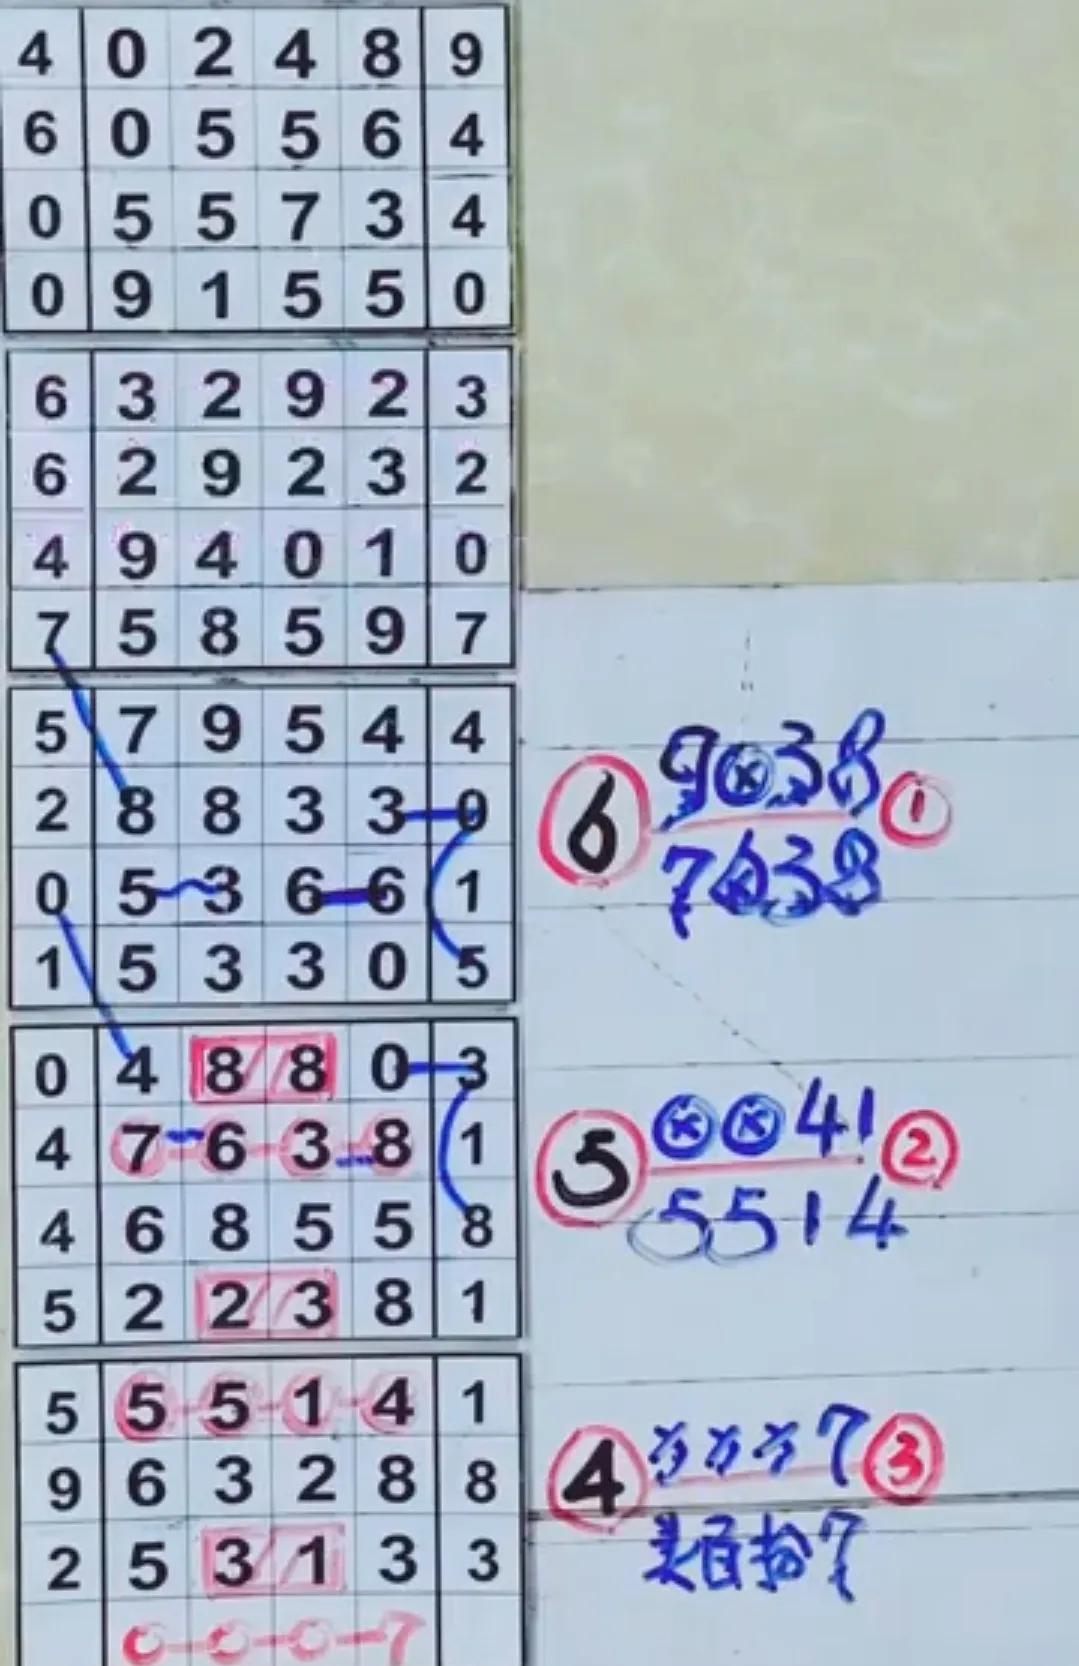 4 0 2 4 8 9
6 0 5 5 6 4
0 5 5 7 3 4
0 9 1 5 5 0
6 3 2 9 2 3
6 2 9 2 3 2
4 9 4 0 1 0
7 5 8 5 9 7
5 7 9 5 4 4
2 8 8 3 3 0
0 5 3 6 6 1
1 5 3 3 0 5
6 9ⓧ38 ①
7638
0 4 8 8 0 3
4 7 6 3 8 1
4 6 8 5 5 8
5 2 2 3 8 1
5 ⓧⓧ41 ②
5514
5 5 5 1 4 1
9 6 3 2 8 8
2 5 3 1 3 3
7
4 xxx7 ③
7